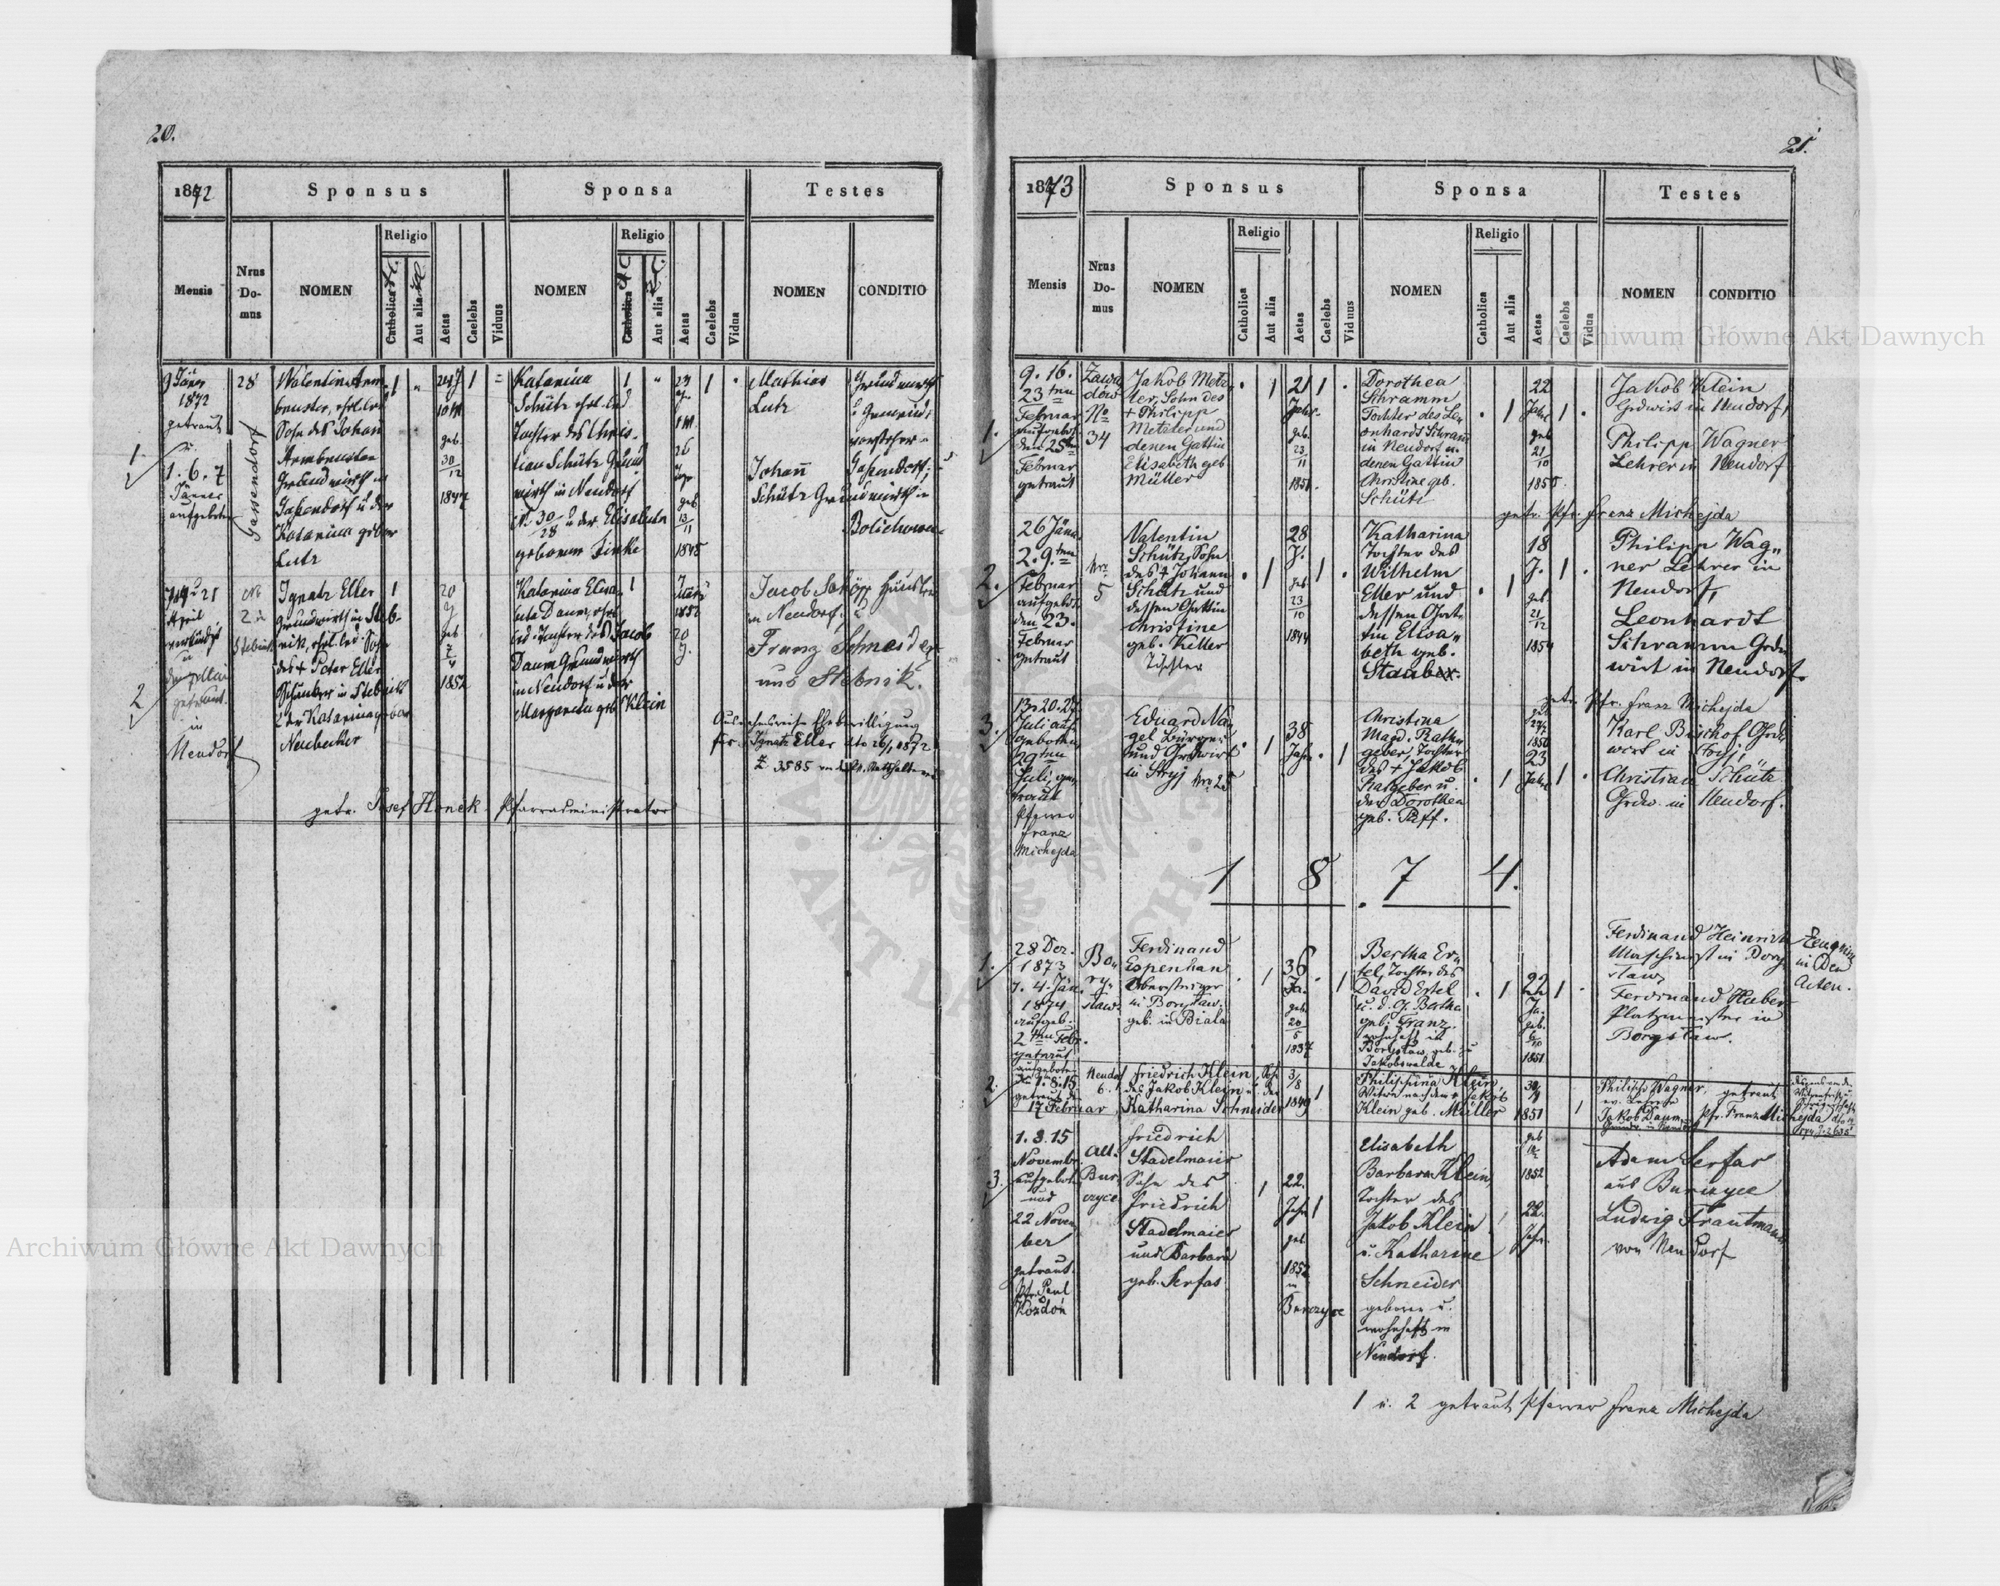 20.
1872
Sponsus
Sponsa
Testes
Mensis
Nrus
Do-
mus
NOMEN
Religio
Catholica
Aut alia
Aetas
Caelebs
Viduus
NOMEN
Religio
Catholica
Aut alia
Aetas
Caelebs
Vidua
NOMEN
CONDITIO
1.
9 Jäner
1872
getraut
1. 6. 7
Jänner
aufgeboten
28
Gassendorf
Valentin Arm
bruster, ehel. led.
Sohn des Johan
Armbruster
Grundwirth in
Gassendorf u der
Katarina gebor
Lutz
1
24 J
10 M
geb.
30/12
1847
1
Katarina
Schütz ehel. led
Tochter des Chris-
tian Schütz Grund
wirth in Neudorf
N. 30/28 u der Elisabeta
geborene Finke
1
geb
13/11
1845
1
Mathias
Lutz
Grundwirth
u Gemeinde
vorsteher
Gassendorf;
Johan
Schütz Grundwirth in
Bolichowce.
2
April
verkündigt
u
getraut
in
Neudorf
Nr
2 in
Stebnik
Ignatz Eller
Grundwirth in Steb-
nik, ehel. led. Sohn
des + Peter Eller
in Stebnik
u der Katarina gebor
Neubecker
1
20
J
geb
7/4
1852
Katarina Elisa-
beta Daum, ehel.
led. Tochter des Jacob
Daum Grundwirth
in Neudorf u der
Margareta geb Klein
1
März
1852
20
J.
Jacob Schöpp
in Neudorf; u
Franz Schneider
aus Stebnik.
Ausnahmsweise Ehebewilligung
für Ignatz Eller dto 26/1 1872
Z 3585 von d. kk. Statthalterei
getr. Josef Honek Pfarradministrator
21.
1873
Sponsus
Sponsa
Testes
Mensis
Nrus
Do-
mus
NOMEN
Religio
Catholica
Aut alia
Aetas
Caelebs
Viduus
NOMEN
Religio
Catholica
Aut alia
Aetas
Caelebs
Vidua
NOMEN
CONDITIO
1.
9. 16.
23ten
Februar
aufgebot
den 25ten
Februar
getraut
Zawa
dow
No
34
Jakob Metz
ler, Sohn des
+ Philipp
Metzler und
dessen Gattin
Elisabeth geb
Müller
1
21
Jahre.
geb.
23/11
1851.
1
Dorothea
Schramm
Tochter des Le-
onhardt Schram
in Neudorf u.
dessen Gattin
Christine geb.
Schütz
1
22
Jahre
geb
21/10
1850.
1
Jakob Klein
Grdwirt in Neudorf,
Philipp Wagner
Lehrer in Neudorf
getr. Pfr. Franz Michejda
2.
26 Jänn.
2. 9.ten
Februar
aufgebot
den 23.
Februar
getraut
Nro
5
Valentin
Schütz, Sohn
des + Johann
Schütz und
dessen Gattin
Christine
geb. Keller
Tischler
1
28
J.
geb
23/10
1844
1
Katharina
Tochter des
Wilhelm
Eller und
dessen Gat-
tin Elisa-
beth geb.
Stauber.
1
18
J.
geb
21/12
1854
1
Philipp Wag-
ner Lehrer in
Neudorf,
Leonhardt
Schramm Grd-
wirt in Neudorf.
getr. Pfr. Franz Michejda
3.
13. 20. 27.
Juli auf
geboten
29ten
Juli ge-
traut
Pfarrer
Franz
Michejda
Eduard Na-
gel Bürger
und Grdwirt
in Stryj Nro 25
1
38
Jahre
1
Christina
Magd. Rath-
geber, Tochter
des + Jakob
Rathgeber u.
der Dorothea
geb. Puff.
1
geb
1850
23
Jahre
1
Karl Bischof Grd-
wirt in Stryj;
Christian Schütz
Grdw. in Neudorf.
1 8 7 4.
1.
28 Dez.
1873
4. Jän.
1874
aufgeb.
2ten Febr.
getraut
Bo-
ry-
slaw
Ferdinand
Espenhan
Obersteiger
in Boryslaw.
geb. in Biala
1
36
Ja.
geb
20/5
1837
1
Bertha Er-
tel, Tochter des
David Ertel
u. d. Bertha
geb. Franz.
wohnhaft in
Boryslaw, geb. zu
Jakobswalde
1
22
Ja.
geb.
6/10
1851
1
Ferdinand Heinrich
Maschinist in Bory-
slaw,
Ferdinand Huber
Platzmeister in
Boryslaw.
Zeugniss
in den
Acten.
2.
aufgeboten
den 1. 8. 15
getraut den
17 Februar
Neudorf
6.
Friedrich Klein, Sohn
des Jakob Klein u. der
Katharina Schneider
3/8
1849
1
Philippina Klein,
Witwe nach dem + Jakob
Klein geb. Müller
30/4
1851
1
Philipp Wagner,
ev. Lehrer
Jakob Daum
Grundw. in Neudorf
getraut
Pfr. Franz Michejda
3.
1. 8. 15
Novembr.
aufgeboten
und
22 Novem
ber
getraut.
Pfr. Paul
Kozdon
Alt.
Bur-
czyce
Friedrich
Stadelmaier
Sohn des
Friedrich
Stadelmaier
und Barbara
geb. Serfas.
1
22.
Jahr
geb.
1852
in
Burczyce
1
Elisabeth
Barbara Klein
Tochter des
Jakob Klein
u. Katharine
Schneider
geboren u.
wohnhaft in
Neudorf.
geb
1852
22.
Jahr.
Adam Serfas
aus Burczyce
Ludwig Trautmann
von Neudorf
1 u. 2 getraut Pfarrer Franz Michejda
Archiwum Główne Akt Dawnych
Archiwum Główne Akt Dawnych